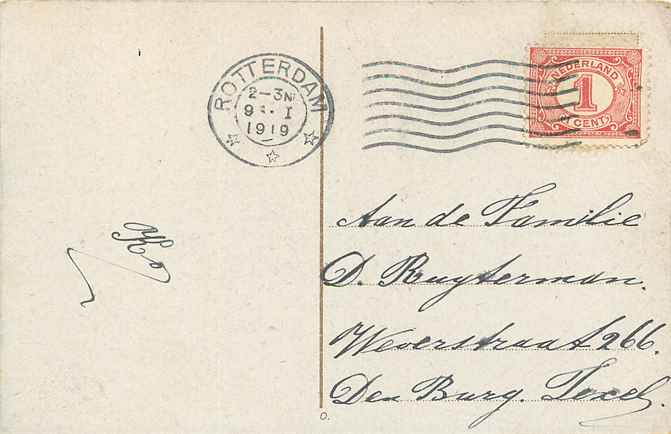 ROTTERDAM
2-3N
I
1919
NEDERLAND
1
CENT
Ko
Aan de Familie
D. Ruyterman.
Weverstraat 266.
Den Burg. Texel.
O.